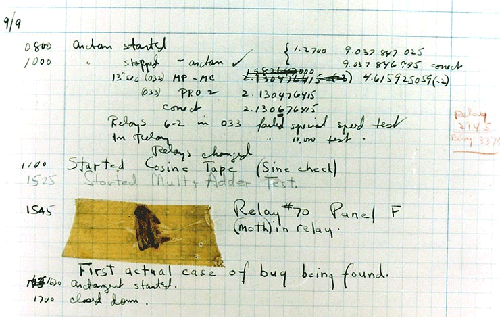 9/9
0800 Antan started { 1.2700 9.037 847 025
1000 " stopped - antan ✓ 9.037 846 995 conect
13" sec (032) MP - MC 4.615925059(-2)
(033) PRO 2 2.130476415
conect 2.130676415
Relays 6-2 in 033 failed special speed test
In Relay " 11,000 test.
Relay
2145
Relay 3370
Relays changed
1100 Started Cosine Tape (Sine check)
1525 Started Mult+Adder Test.
1545 Relay #70 Panel F
(moth) in relay.
First actual case of bug being found.
1630 antangent started.
1700 closed down.